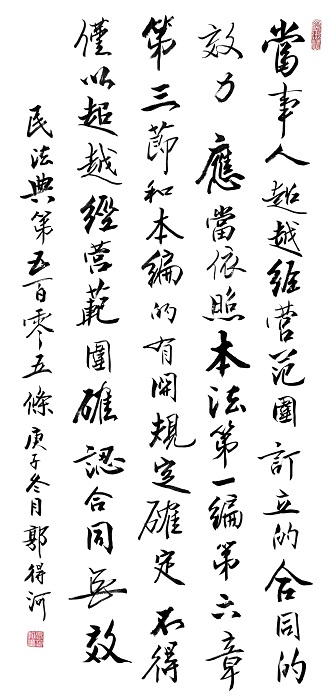 當事人超越經營范圍訂立的合同的
效力應當依照本法第一編第六章
第三節和本編的有關規定確定不得
僅以超越經營範圍確認合同無效
民法典第五百零五條庚子冬月郭得河